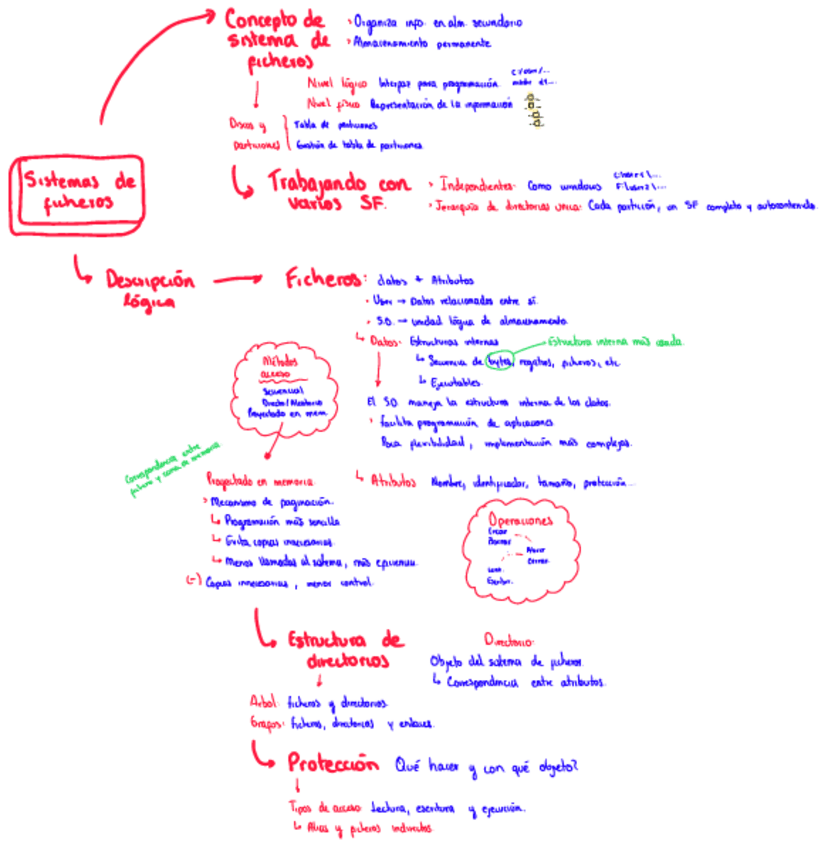 Concepto de
sistema de
ficheros
> Organiza info. en alm. secundario
> Almacenamiento permanente
Nivel lógico Interfaz para programación.
Nivel físico Representación de la información
Discos y
particiones
Tabla de particiones
Gestión de tabla de particiones
Sistemas de
ficheros
Trabajando con
varios SF.
> Independientes: Como windows
> Jerarquía de directorios única: Cada partición, un SF completo y autocontenido.
Descripción
lógica
Ficheros: datos + Atributos
• User → Datos relacionados entre sí.
• S.O. → unidad lógica de almacenamiento.
Datos: Estructuras internas
Estructura interna más usada.
Secuencia de bytes, registros, ficheros, etc
Ejecutables.
El S.O. maneja la estructura interna de los datos.
> facilita programación de aplicaciones.
Poca flexibilidad, implementación más complejas.
Atributos Nombre, identificador, tamaño, protección...
Métodos
acceso
Secuencial
Directo/Aleatorio
Proyectado en mem.
Correspondencia entre
fichero y zona de memoria
Proyectado en memoria
> Mecanismo de paginación.
Programación más sencilla
Evita copias innecesarias
Menos llamadas al sistema, más eficiencia.
(-) Copias innecesarias, menor control.
Operaciones
Crear
Borrar
Abrir
Cerrar
Leer
Escribir.
Estructura de
directorios
Directorio:
Objeto del sistema de ficheros.
Correspondencia entre atributos.
Arbol: ficheros y directorios
Grafos: ficheros, directorios y enlaces.
Protección Qué hacer y con qué objeto?
Tipos de acceso: Lectura, escritura y ejecución.
Alias y ficheros indirectos.